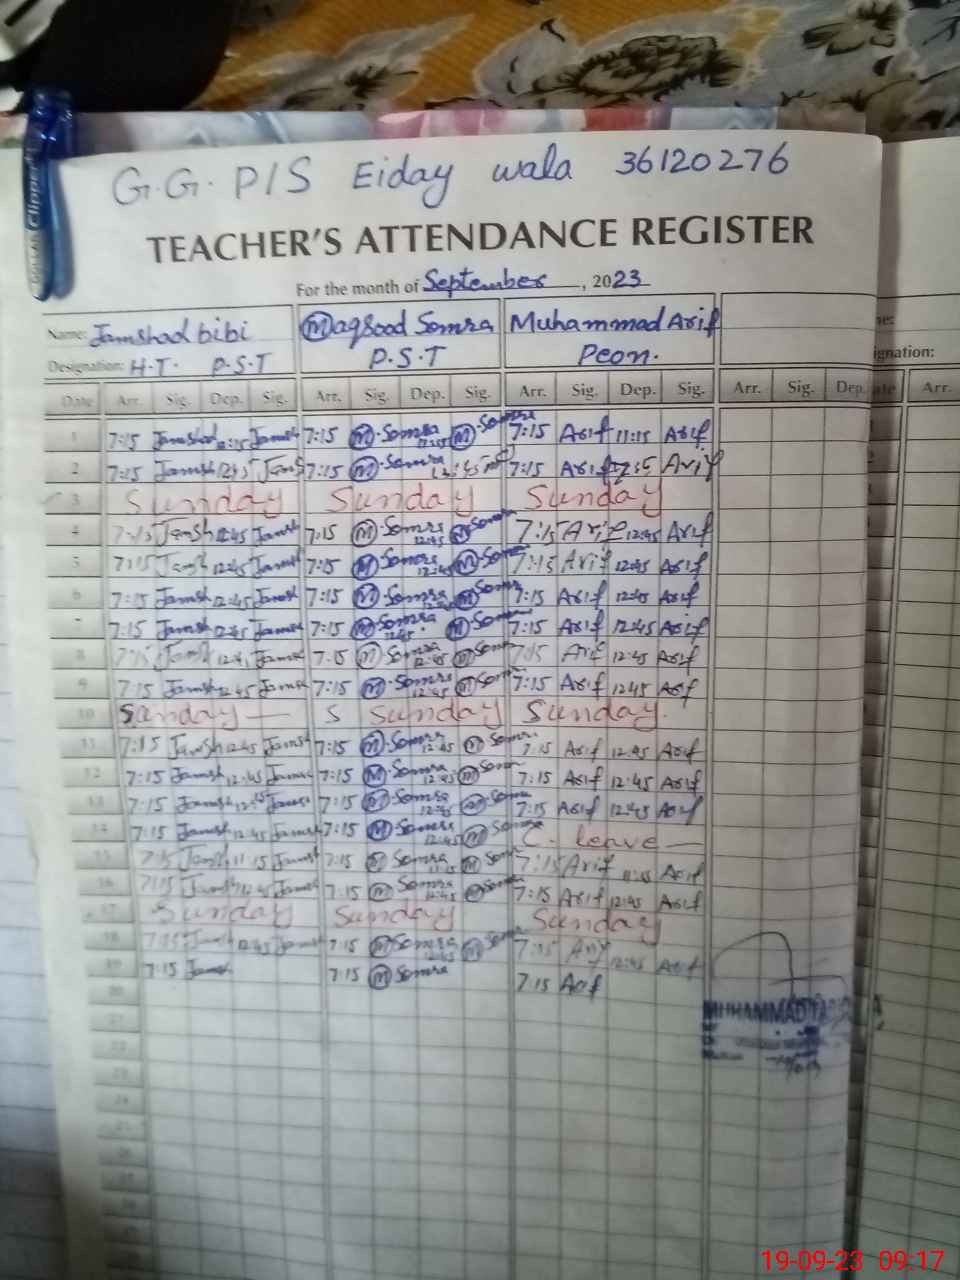 G.G. P/S Eiday wala 36120276
TEACHER'S ATTENDANCE REGISTER
For the month of September, 2023
Name: Jamshad bibi Maqsood Somra Muhammad Arif
Designation: H.T. P.S.T P.S.T Peon. ignation:
Date Arr. Sig. Dep. Sig. Arr. Sig. Dep. Sig. Arr. Sig. Dep. Sig. Arr. Sig. Dep. Arr.
1 7:15 Jamshad Jamsh 7:15 M.Somra M Somra 7:15 Arif 11:15 Arif
2 7:15 Jamsh Jamsh 7:15 M Somra 7:15 Arif Arif
3 Sunday Sunday Sunday
4 7:15 Jamsh 12:45 Jamsh 7:15 M Somra 12:45 M Somra 7:15 Arif 12:45 Arif
5 7:15 Jamsh 12:45 Jamsh 7:15 M Somra 12:45 M Somra 7:15 Arif 12:45 Arif
6 7:15 Jamsh 12:45 Jamsh 7:15 M Somra 12:45 M Somra 7:15 Arif 12:45 Arif
7 7:15 Jamsh 12:45 Jamsh 7:15 M Somra 12:45 M Somra 7:15 Arif 12:45 Arif
8 7:15 Jamsh Jamsh 7:15 M Somra 12:45 M Somra 7:15 Arif 12:45 Arif
9 7:15 Jamsh 12:45 Jamsh 7:15 M Somra 12:45 M Somra 7:15 Arif 12:45 Arif
10 Sanday — S Sunday Sunday.
11 7:15 Jamsh 12:45 Jamsh 7:15 M.Somra 12:45 M Somra 7:15 Arif 12:45 Arif
12 7:15 Jamsh 12:45 Jamsh 7:15 M.Somra 12:45 M Somra 7:15 Arif 12:45 Arif
13 7:15 Jamsh 12:45 Jamsh 7:15 M.Somra 12:45 M Somra 7:15 Arif 12:45 Arif
14 7:15 Jamsh 12:45 Jamsh 7:15 M Somra 12:45 M Somra C. leave —
15 7:15 Jamsh 11:15 Jamsh 7:15 M Somra 11:15 M Somra 7:15 Arif 11:15 Arif
16 7:15 Jamsh 12:45 Jamsh 7:15 M Somra 12:45 M Somra 7:15 Arif 12:45 Arif
17 Sunday Sunday Sunday
18 7:15 Jamsh 12:45 Jamsh 7:15 M Somra 12:45 M Somra 7:15 Arif 12:45 Arif
19 7:15 Jamsh 7:15 M Somra 7:15 Arif
20
MUHAMMAD
21
22
23
24
25
26
19-09-23 09:17